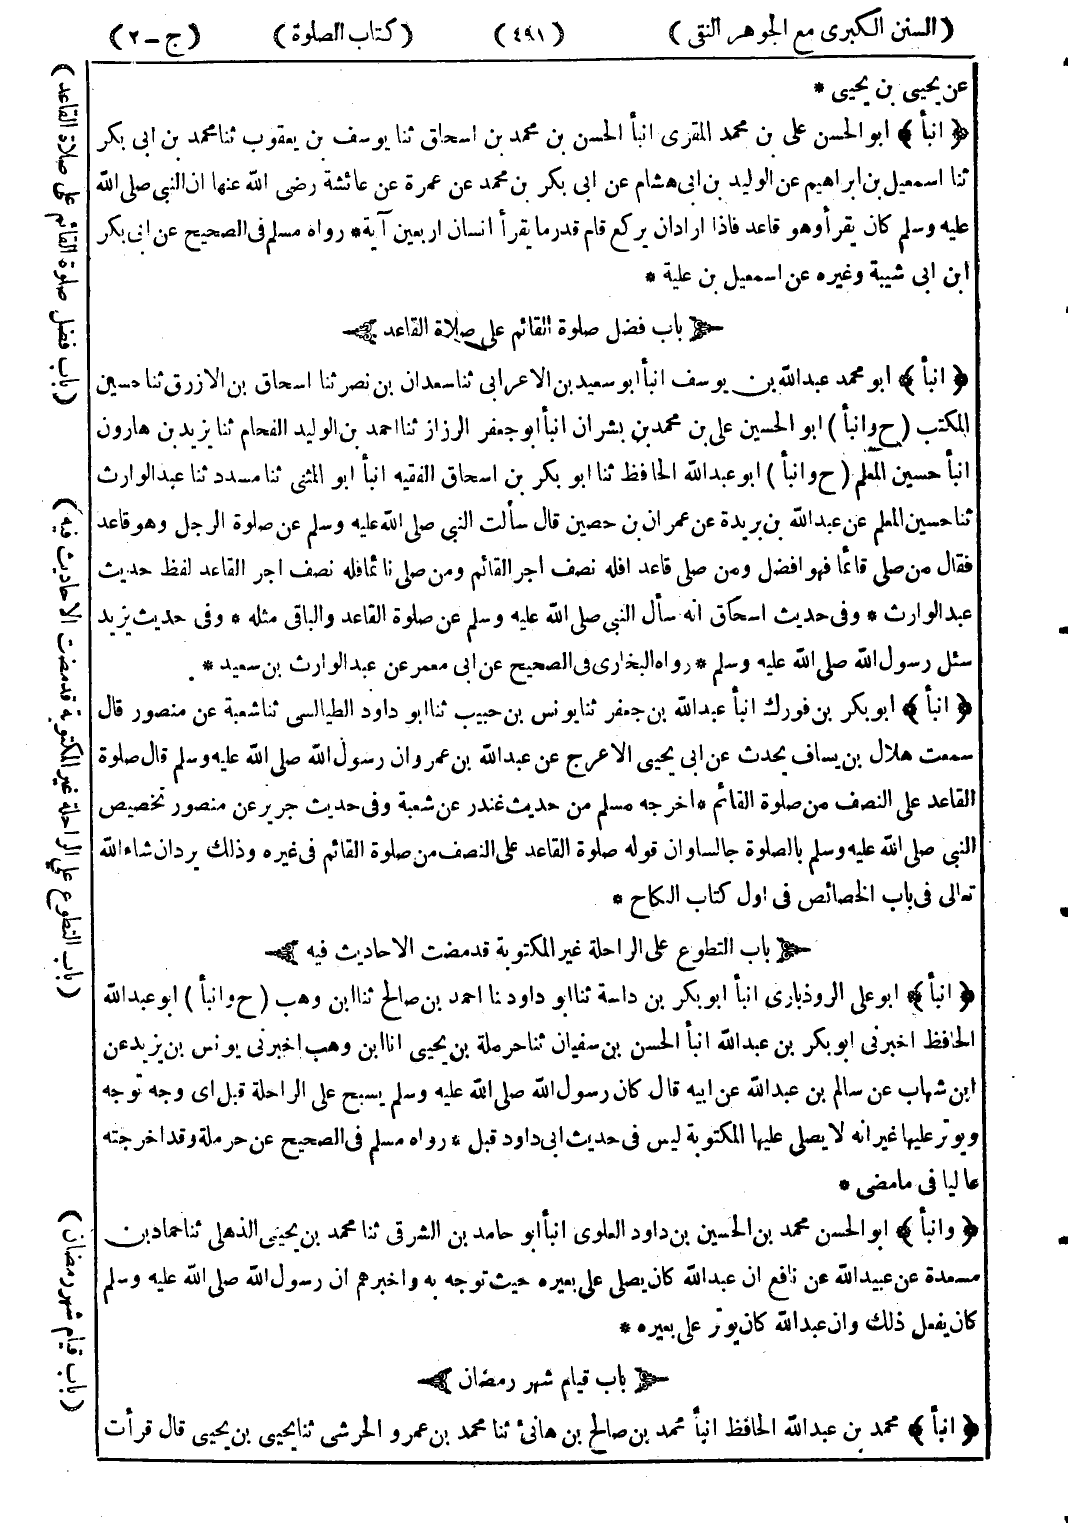 (السنن الكبرى مع الجوهر النقى) (٤٩١) (كتاب الصلوة) (ج-٢)
عن يحيى بن يحيى *
﴿ انبأ ﴾ ابو الحسن على بن محمد المقرى انبأ الحسن بن محمد بن اسحاق ثنا يوسف بن يعقوب ثنا محمد بن ابى بكر
ثنا اسمعيل بن ابراهيم عن الوليد بن ابى هشام عن ابى بكر بن محمد عن عمرة عن عائشة رضى الله عنها ان النبى صلى الله
عليه وسلم كان يقرأ وهو قاعد فاذا اراد ان يركع قام قدر ما يقرأ انسان اربعين آية * رواه مسلم فى الصحيح عن ابى بكر
ابن ابى شيبة وغيره عن اسمعيل بن علية *
باب فضل صلوة القائم على صلاة القاعد
﴿ انبأ ﴾ ابو محمد عبدالله بن يوسف انبأ ابو سعيد بن الاعرابى ثنا سعدان بن نصر ثنا اسحاق بن الازرق ثنا حسين
المكتب (ح وانبأ) ابو الحسين على بن محمد بن بشران انبأ ابو جعفر الرزاز ثنا احمد بن الوليد الفحام ثنا يزيد بن هارون
انبأ حسين المعلم (ح وانبأ) ابو عبدالله الحافظ ثنا ابو بكر بن اسحاق الفقيه انبأ ابو المثنى ثنا مسدد ثنا عبدالوارث
ثنا حسين المعلم عن عبدالله بن بريدة عن عمران بن حصين قال سألت النبى صلى الله عليه وسلم عن صلوة الرجل وهو قاعد
فقال من صلى قائما فهو افضل ومن صلى قاعد افله نصف اجر القائم ومن صلى نائما فله نصف اجر القاعد لفظ حديث
عبدالوارث * وفى حديث اسحاق انه سأل النبى صلى الله عليه وسلم عن صلوة القاعد والباقى مثله * وفى حديث يزيد
سئل رسول الله صلى الله عليه وسلم * رواه البخارى فى الصحيح عن ابى معمر عن عبدالوارث بن سعيد *
﴿ انبأ ﴾ ابو بكر بن فورك انبأ عبدالله بن جعفر ثنا يونس بن حبيب ثنا ابو داود الطيالسى ثنا شعبة عن منصور قال
سمعت هلال بن يساف يحدث عن ابى يحيى الاعرج عن عبدالله بن عمرو ان رسول الله صلى الله عليه وسلم قال صلوة
القاعد على النصف من صلوة القائم * اخرجه مسلم من حديث غندر عن شعبة وفى حديث جرير عن منصور تخصيص
النبى صلى الله عليه وسلم بالصلوة جالسا وان قوله صلوة القاعد على النصف من صلوة القائم فى غيره وذلك يرد ان شاء الله
تعالى فى باب الخصائص فى اول كتاب النكاح *
باب التطوع على الراحلة غير المكتوبة قد مضت الاحاديث فيه
﴿ انبأ ﴾ ابو على الروذبارى انبأ ابو بكر بن داسة ثنا ابو داود نا احمد بن صالح ثنا ابن وهب (ح وانبأ) ابو عبدالله
الحافظ اخبرنى ابو بكر بن عبدالله انبأ الحسن بن سفيان ثنا حرملة بن يحيى انا ابن وهب اخبرنى يونس بن يزيد عن
ابن شهاب عن سالم بن عبدالله عن ابيه قال كان رسول الله صلى الله عليه وسلم يسبح على الراحلة قبل اى وجه توجه
ويوتر عليها غير انه لا يصلى عليها المكتوبة ليس فى حديث ابى داود قبل * رواه مسلم فى الصحيح عن حرملة وقد اخرجته
عاليا فى ما مضى *
﴿ وانبأ ﴾ ابو الحسن محمد بن الحسين بن داود العلوى انبأ ابو حامد بن الشرقى ثنا محمد بن يحيى الذهلى ثنا حماد بن
مسعدة عن عبيدالله عن نافع ان عبدالله كان يصلى على بعيره حيث توجه به واخبرهم ان رسول الله صلى الله عليه وسلم
كان يفعل ذلك وان عبدالله كان يوتر على بعيره *
باب قيام شهر رمضان
﴿ انبأ ﴾ محمد بن عبدالله الحافظ انبأ محمد بن صالح بن هانئ ثنا محمد بن عمرو الحرشى ثنا يحيى بن يحيى قال قرأت
(باب فضل صلوة القائم على صلاة القاعد)
(باب التطوع على الراحلة غير المكتوبة قد مضت الاحاديث فيه)
(باب قيام شهر رمضان)